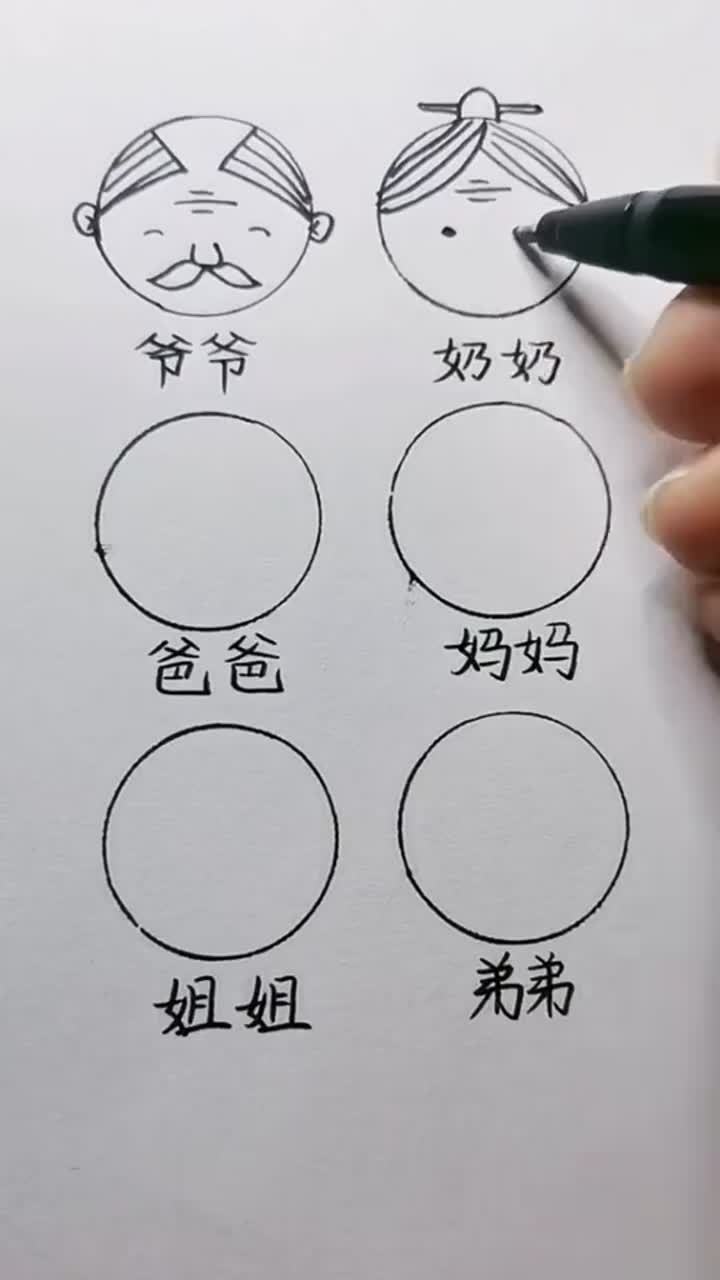 爷爷 奶奶
爸爸 妈妈
姐姐 弟弟